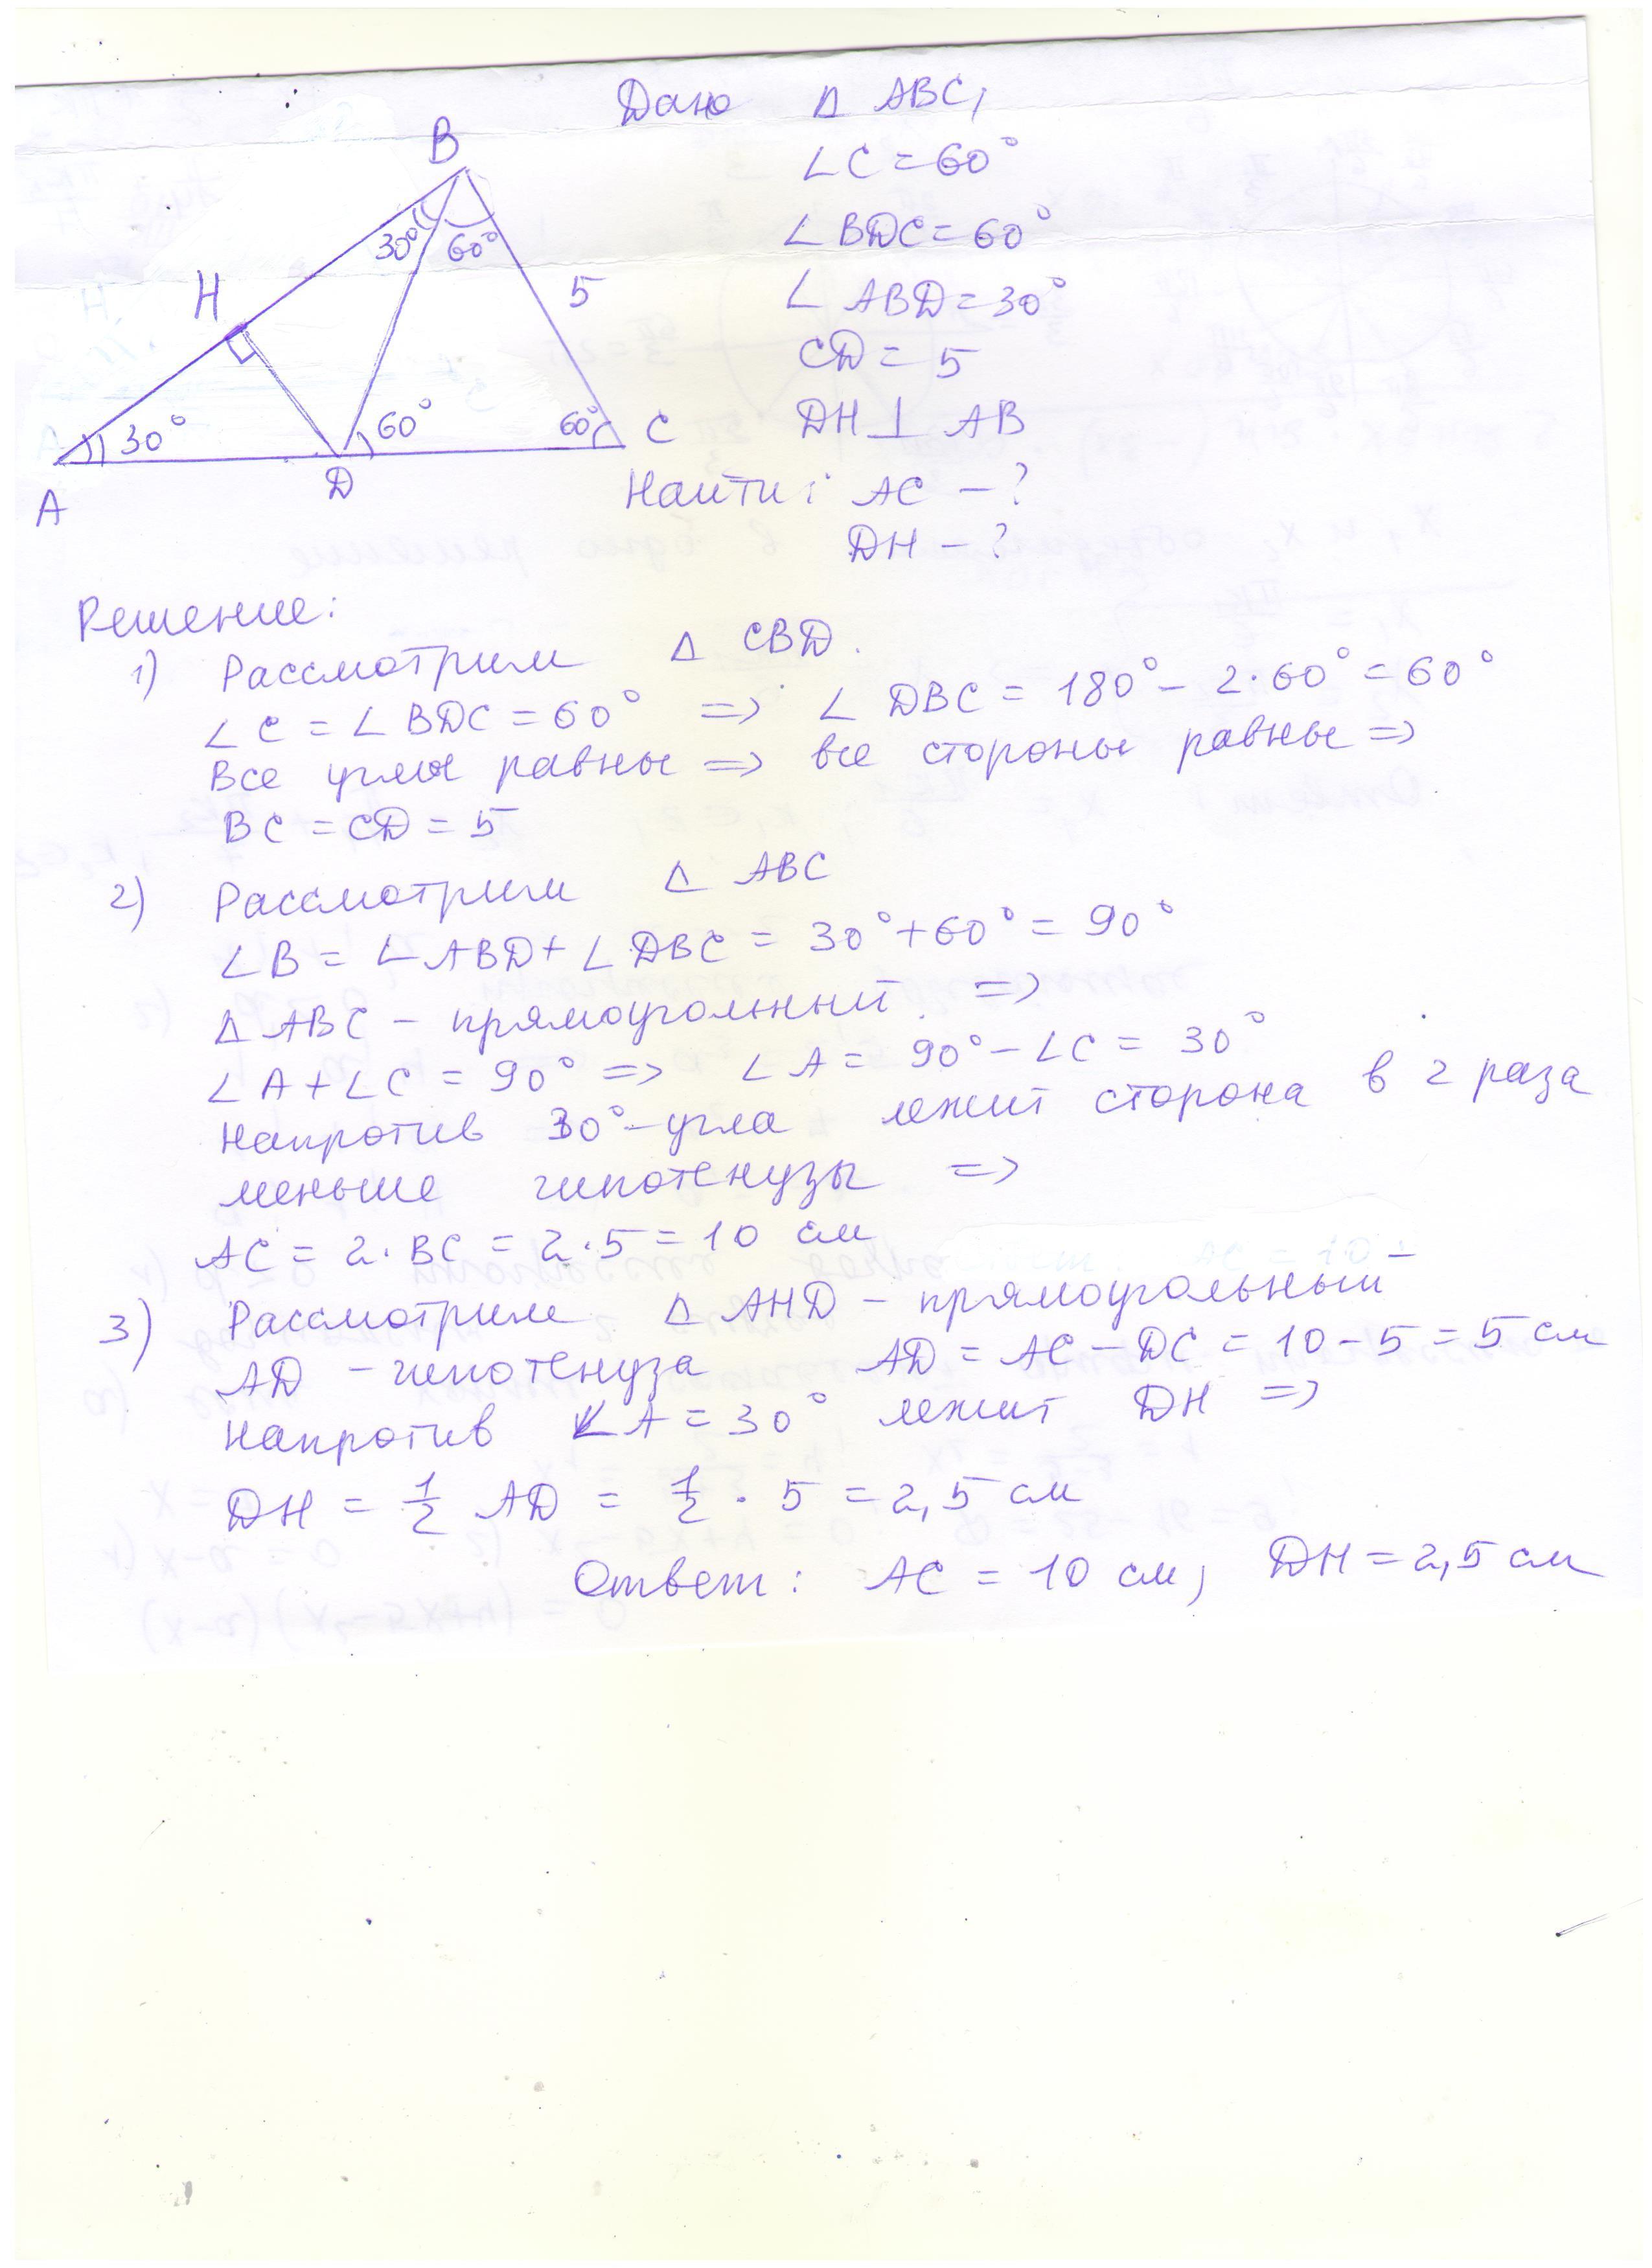 Дано △ ABC,
∠C = 60°
∠BDC = 60°
∠ ABD = 30°
CD = 5
DH ⊥ AB
Найти: AC – ?
DH – ?
B
30° 60°
H
5
30°
60°
60°
C
A
D
Решение:
1) Рассмотрим △ CBD.
∠C = ∠BDC = 60° => ∠ DBC = 180° – 2·60° = 60°
Все углы равны => все стороны равны =>
BC = CD = 5
2) Рассмотрим △ ABC
∠B = ∠ABD + ∠DBC = 30° + 60° = 90°
△ ABC – прямоугольный =>
∠A + ∠C = 90° => ∠A = 90° – ∠C = 30°
Напротив 30°-угла лежит сторона в 2 раза
меньше гипотенузы =>
AC = 2·BC = 2·5 = 10 см
3) Рассмотрим △ AHD – прямоугольный –
AD – гипотенуза AD = AC – DC = 10 – 5 = 5 см
Напротив ∠A = 30° лежит DH =>
DH = 1/2 AD = 1/2 · 5 = 2,5 см
Ответ: AC = 10 см, DH = 2,5 см